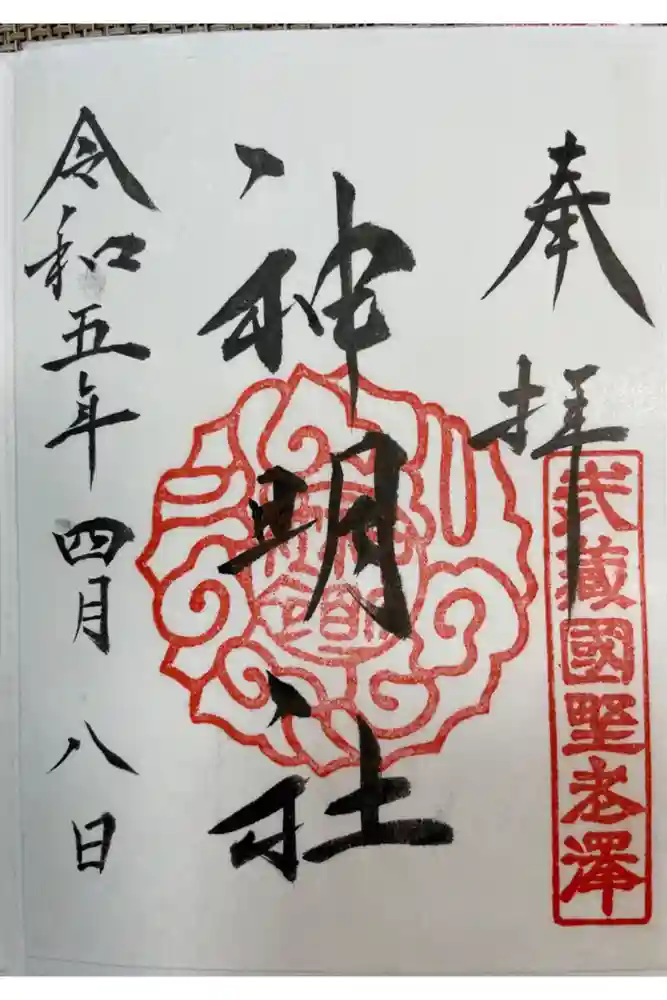 奉拝
武蔵國野老澤
神明社
令和五年四月八日